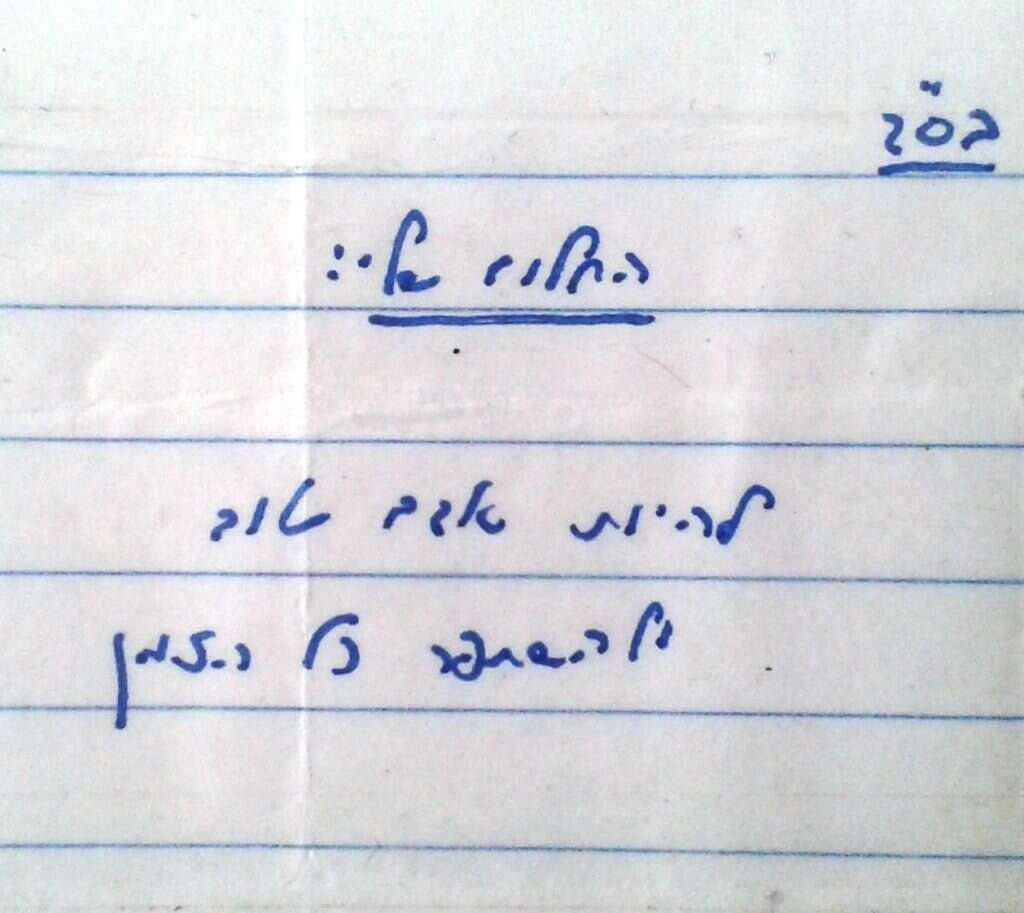 בס"ד
החלום שלי:
להיות אדם טוב
ולהשתפר כל הזמן